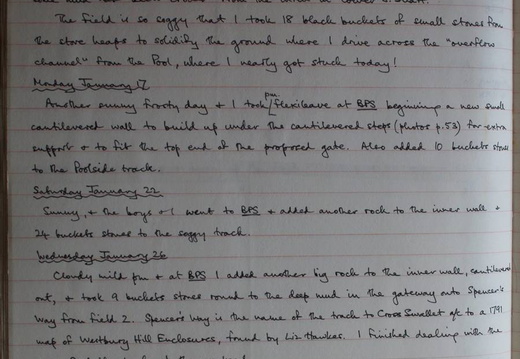 The field is so soggy that I took 18 black buckets of small stones from
the store heaps to solidify the ground where I drive across the "overflow
channel" from the Pool, where I nearly got stuck today!
Monday January 17
Another sunny frosty day & I took pm flexileave at BPS beginning a new small
cantilevered wall to build up under the cantilevered steps (photos p.53) for extra
support & to fit the top end of the proposed gate. Also added 10 buckets stones
to the Poolside track.
Saturday January 22
Sunny, & the boys & I went to BPS & added another rock to the inner wall &
24 buckets stones to the soggy track.
Wednesday January 26
Cloudy mild pm & at BPS I added another big rock to the inner wall, cantilevered
out, & took 9 buckets stones round to the deep mud in the gateway onto Spencer's
Way from field 2. Spencer's Way is the name of the track to Cross Swallet etc to a 1791
map of Westbury Hill Enclosures, found by Liz Hawkes. I finished dealing with the